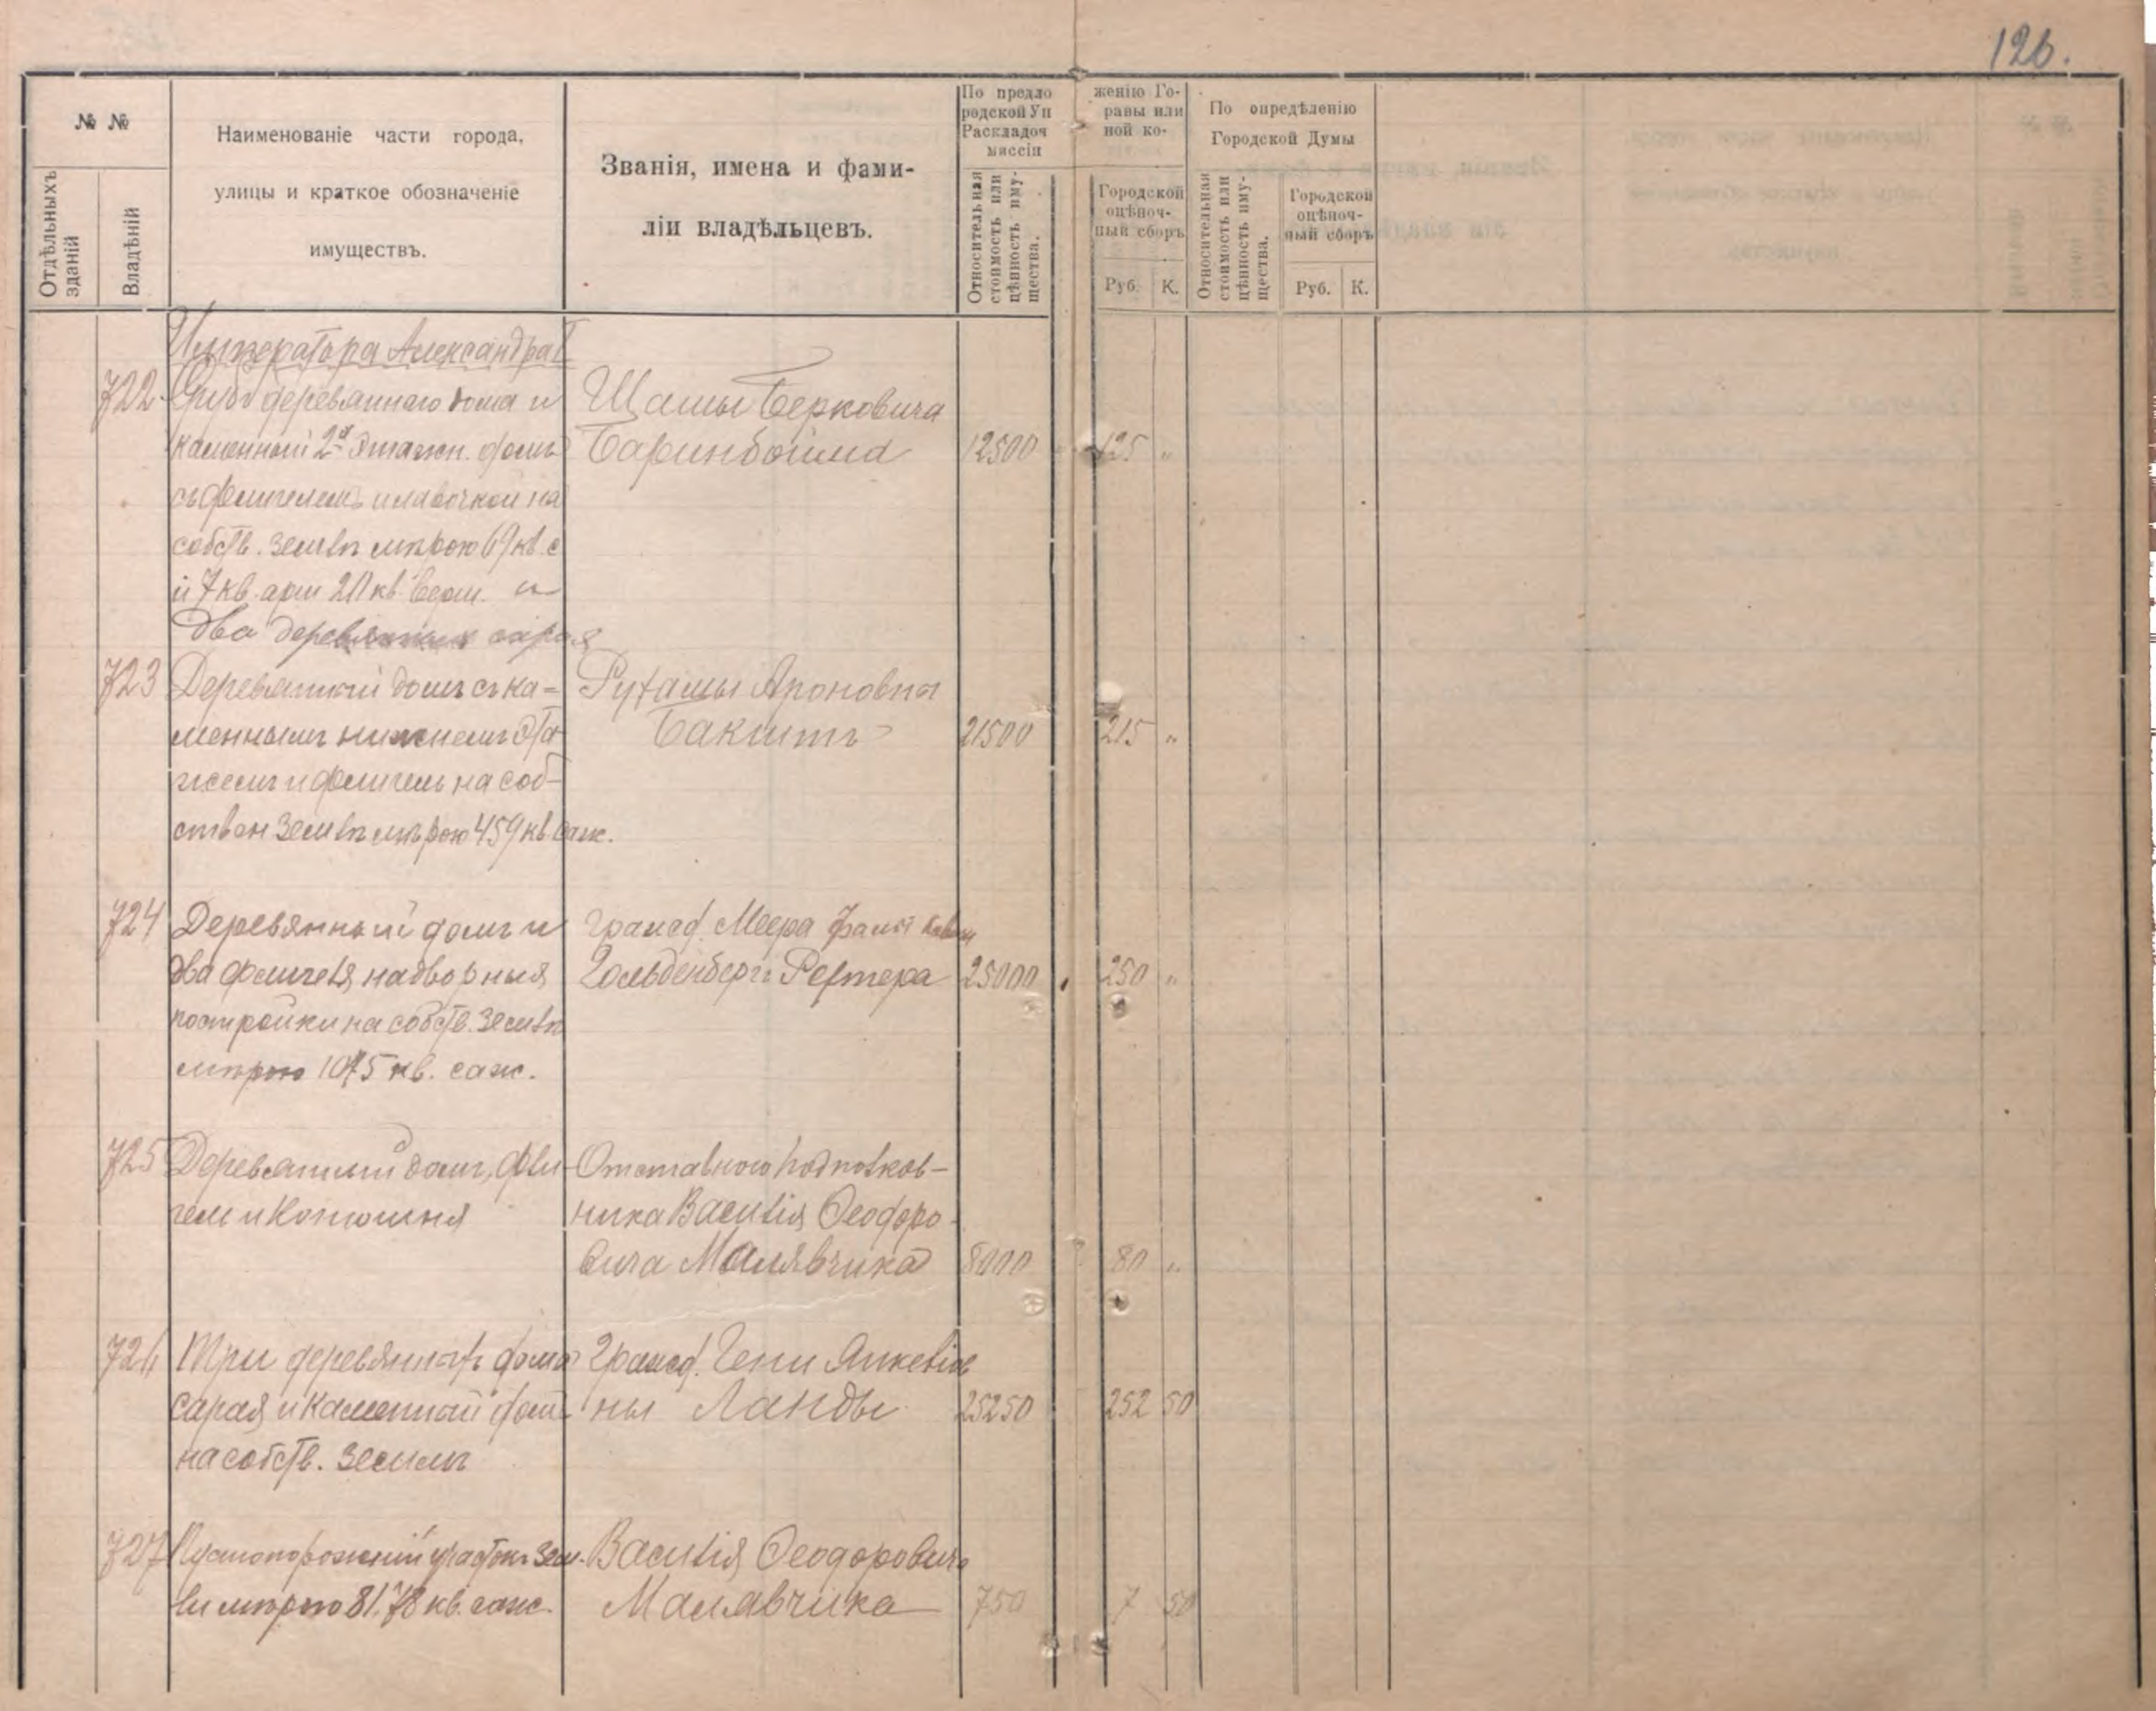 126.
№ №
Отдѣльныхъ зданій
Владѣній
Наименованіе части города,
улицы и краткое обозначеніе
имуществъ.
Званія, имена и фами-
ліи владѣльцевъ.
По предло женію Го-
родской Уп равы или
Раскладоч ной ко-
миссіи
Относительная
стоимость или
цѣнность иму-
щества.
Городской
оцѣноч-
ный сборъ
Руб. К.
По опредѣленію
Городской Думы
Относительная
стоимость или
цѣнность иму-
щества.
Городской
оцѣноч-
ный сборъ
Руб. К.
Императора Александра I
722 деревяннаго дома и
каменный 2х этажн. домъ
съ флигелемъ и лавочкой на
собств. землѣ мѣрою 69 кв. с
и 7 кв. арш 20 кв. верш. и
два деревянныхъ сарая
Шамы Берковича
Баринбойма 12500 125 "
723 Деревянный домъ съ ка-
меннымъ нижнемъ эта
жемъ и флигель на соб-
ствен землѣ мѣрою 459 кв саж.
Рухамы Ароновны
Бакштъ 21500 215 "
724 Деревянный домъ и
два флигеля, надворныя
постройки на собств. землѣ
мѣрою 1075 кв. саж.
Гражд. Меера
Гольденберга 25000 250 "
725 Деревянный домъ, фли-
гель и конюшня
Отставного подполков-
ника Василія Ѳеодоро-
вича Малявчика 8000 80 "
726 Три деревянныхъ дома
сарая и каменный дом
на собств. землѣ
Гражд. Гени Янкелів
ны Ланды 25250 252 50
727 Пустопорожній участокъ зем-
ли мѣрою 81,78 кв. саж.
Василія Ѳеодоровича
Малявчика 750 7 50